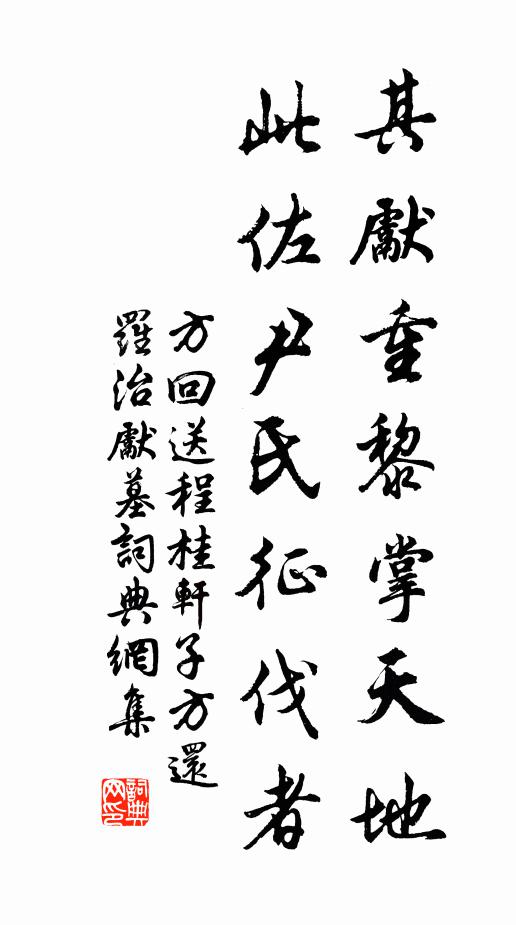 其獻重黎掌天地
此佐尹氏征伐者
方回送程桂軒子方還
羅治獻墓詞典網集
詞典網印